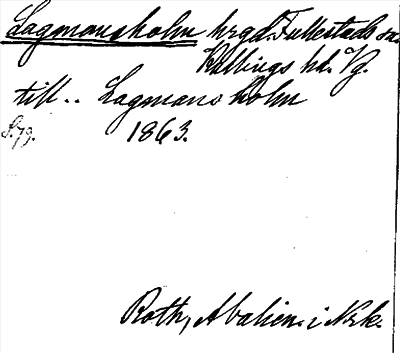 Lagmansholm hrgd. Fullestads sn.
Kullings hd. Vg.
till.. Lagmansholm
S. 79. 1863.
Roth, Abalien. i Nrk.